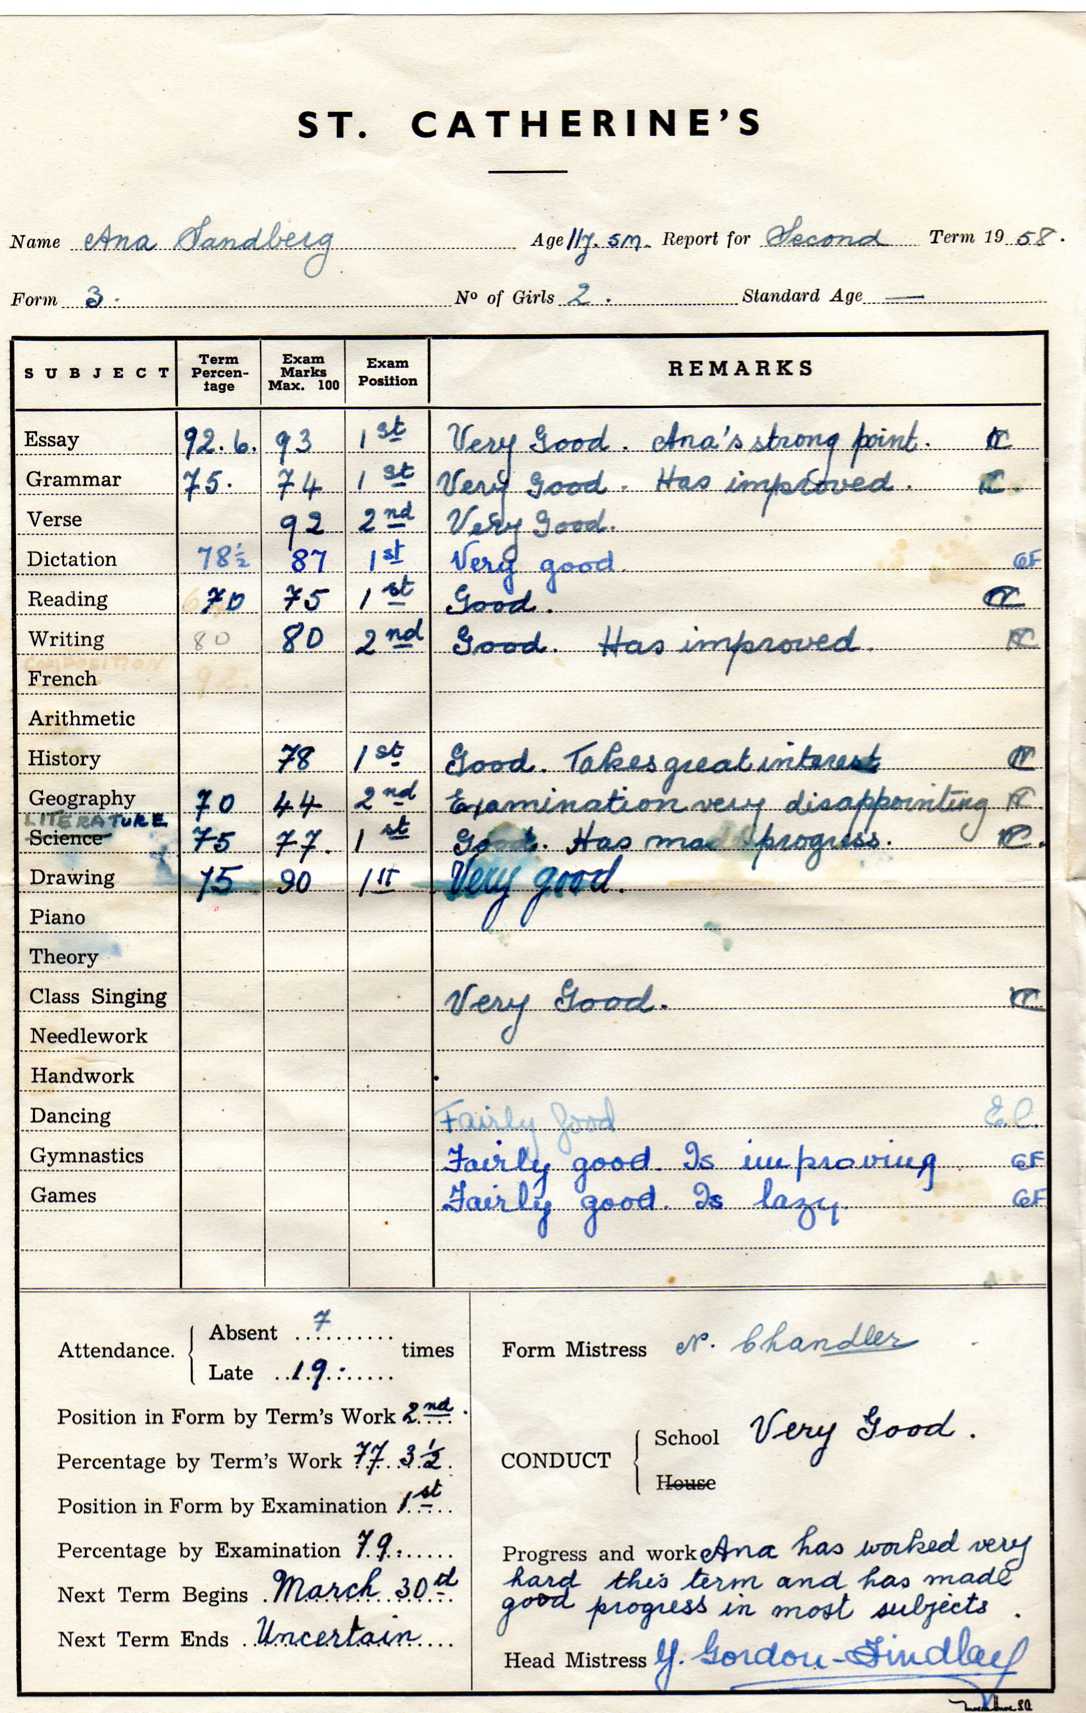 ST. CATHERINE'S
Name Ana Sandberg Age 11y. 5m. Report for Second Term 19 58.
Form 3. Nº of Girls 2. Standard Age —
SUBJECT Term Percentage Exam Marks Max. 100 Exam Position REMARKS
Essay 92.6. 93 1st Very Good. Ana's strong point.
Grammar 75. 74 1st Very Good. Has improved.
Verse 92 2nd Very Good.
Dictation 78½ 87 1st Very good GF
Reading 70 75 1st Good.
Writing 80 80 2nd Good. Has improved.
COMPOSITION 92.
French
Arithmetic
History 78 1st Good. Takes great interest
Geography 70 44 2nd Examination very disappointing
LITERATURE
Science 75 77. 1st Good. Has made progress.
Drawing 75 90 1st Very good.
Piano
Theory
Class Singing Very Good.
Needlework
Handwork
Dancing Fairly good E.C.
Gymnastics Fairly good. Is improving GF
Games Fairly good. Is lazy. GF
Attendance. Absent 7 times
Late 19.
Position in Form by Term's Work 2nd.
Percentage by Term's Work 77. 3½.
Position in Form by Examination 1st
Percentage by Examination 79.
Next Term Begins March 30td
Next Term Ends Uncertain
Form Mistress N. Chandler
CONDUCT School Very Good.
House
Progress and work Ana has worked very
hard this term and has made
good progress in most subjects.
Head Mistress Y. Gordon-Findlay